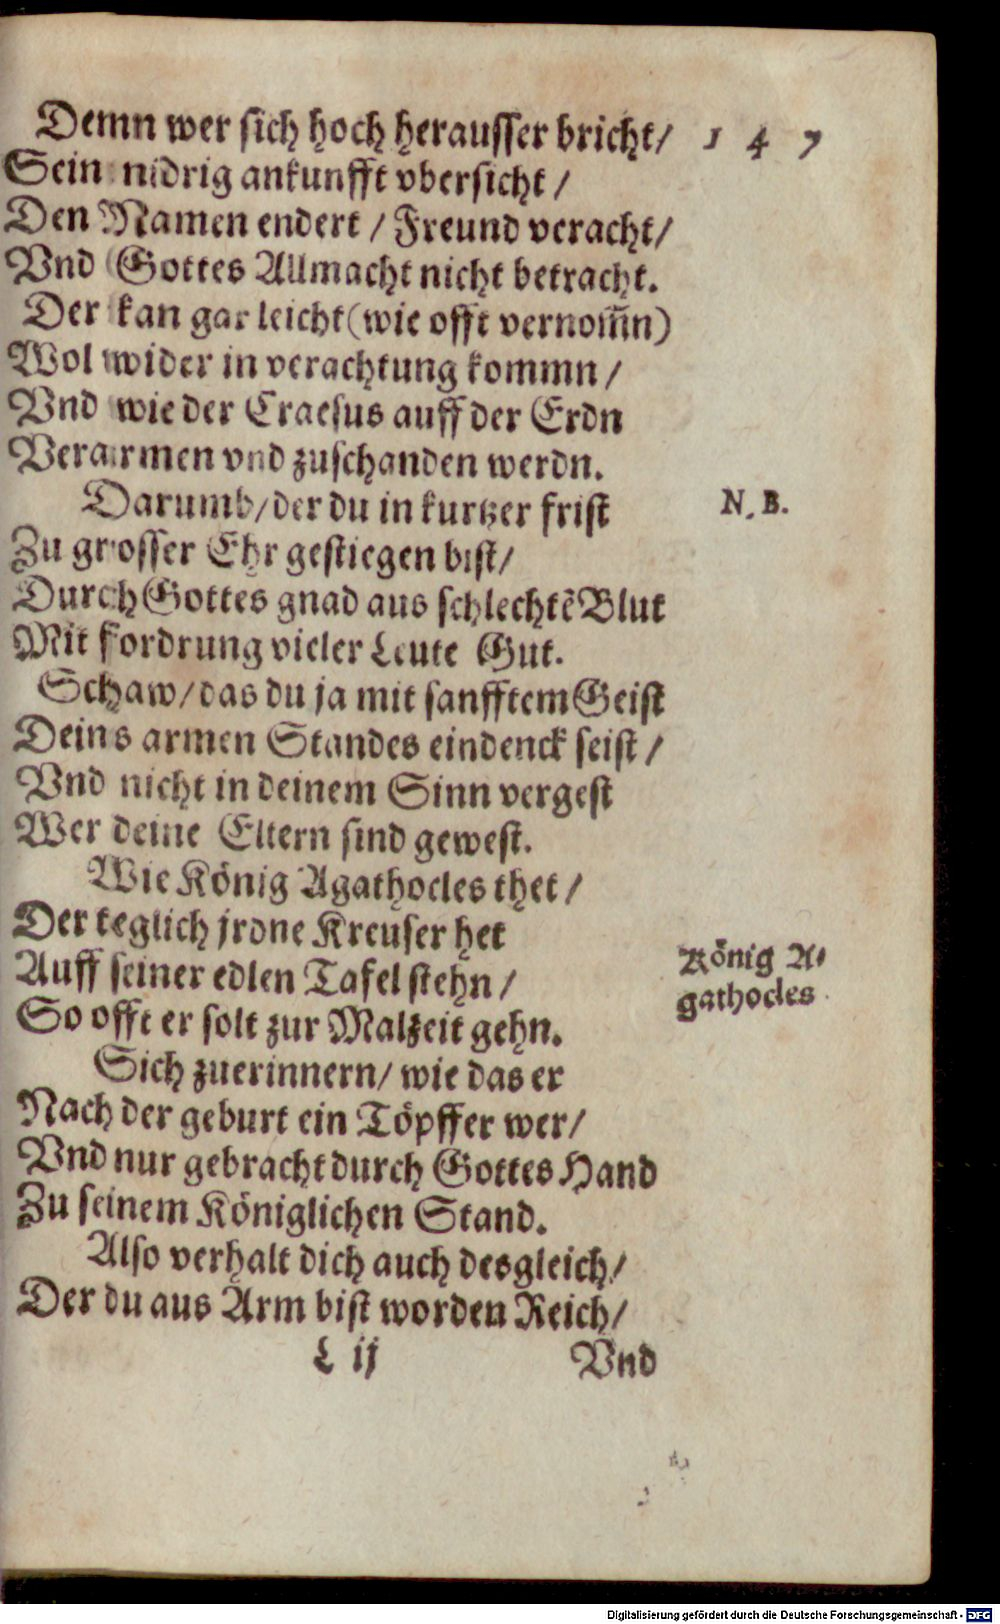 Demn wer sich hoch herausser bricht/ 147
Sein nidrig ankunfft vbersicht /
Den Namen endert / Freund veracht/
Vnd Gottes Allmacht nicht betracht.
Der kan gar leicht (wie offt vernom̃n)
Wol wider in verachtung kommn /
Vnd wie der Craesus auff der Erdn
Verarmen vnd zuschanden werdn.
Darumb/ der du in kurtzer frist
N. B.
Zu grosser Ehr gestiegen bist/
Durch Gottes gnad aus schlechtẽ Blut
Mit fordrung vieler Leute Gut.
Schaw/ das du ja mit sanfftem Geist
Deins armen Standes eindenck seist /
Vnd nicht in deinem Sinn vergest
Wer deine Eltern sind gewest.
Wie König Agathocles thet /
Der teglich jrdne Kreuser het
Auff seiner edlen Tafel stehn /
König A-
gathocles
So offt er solt zur Malzeit gehn.
Sich zuerinnern/ wie das er
Nach der geburt ein Töpffer wer/
Vnd nur gebracht durch Gottes Hand
Zu seinem Königlichen Stand.
Also verhalt dich auch desgleich/
Der du aus Arm bist worden Reich/
L ij Vnd
Digitalisierung gefördert durch die Deutsche Forschungsgemeinschaft - DFG